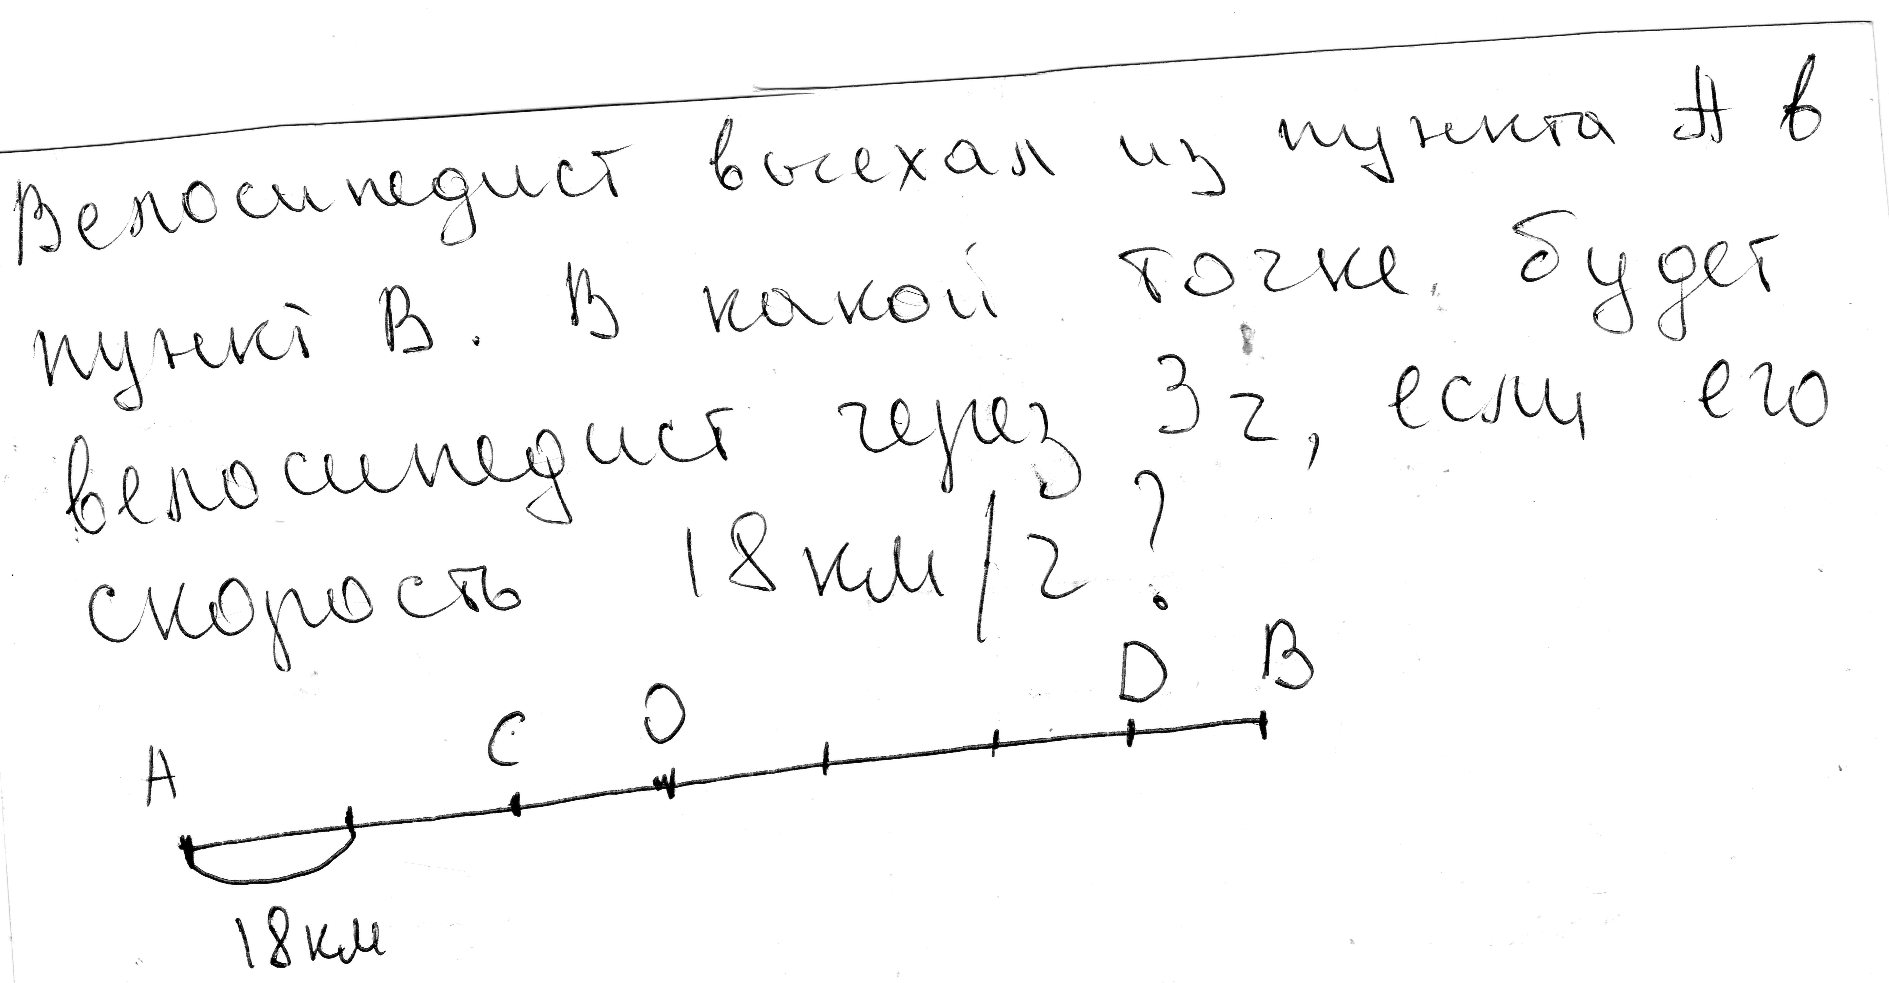 Велосипедист выехал из пункта А в
пункт В. В какой точке будет
велосипедист через 3ч, если его
скорость 18км/ч?
А С О D В
18км